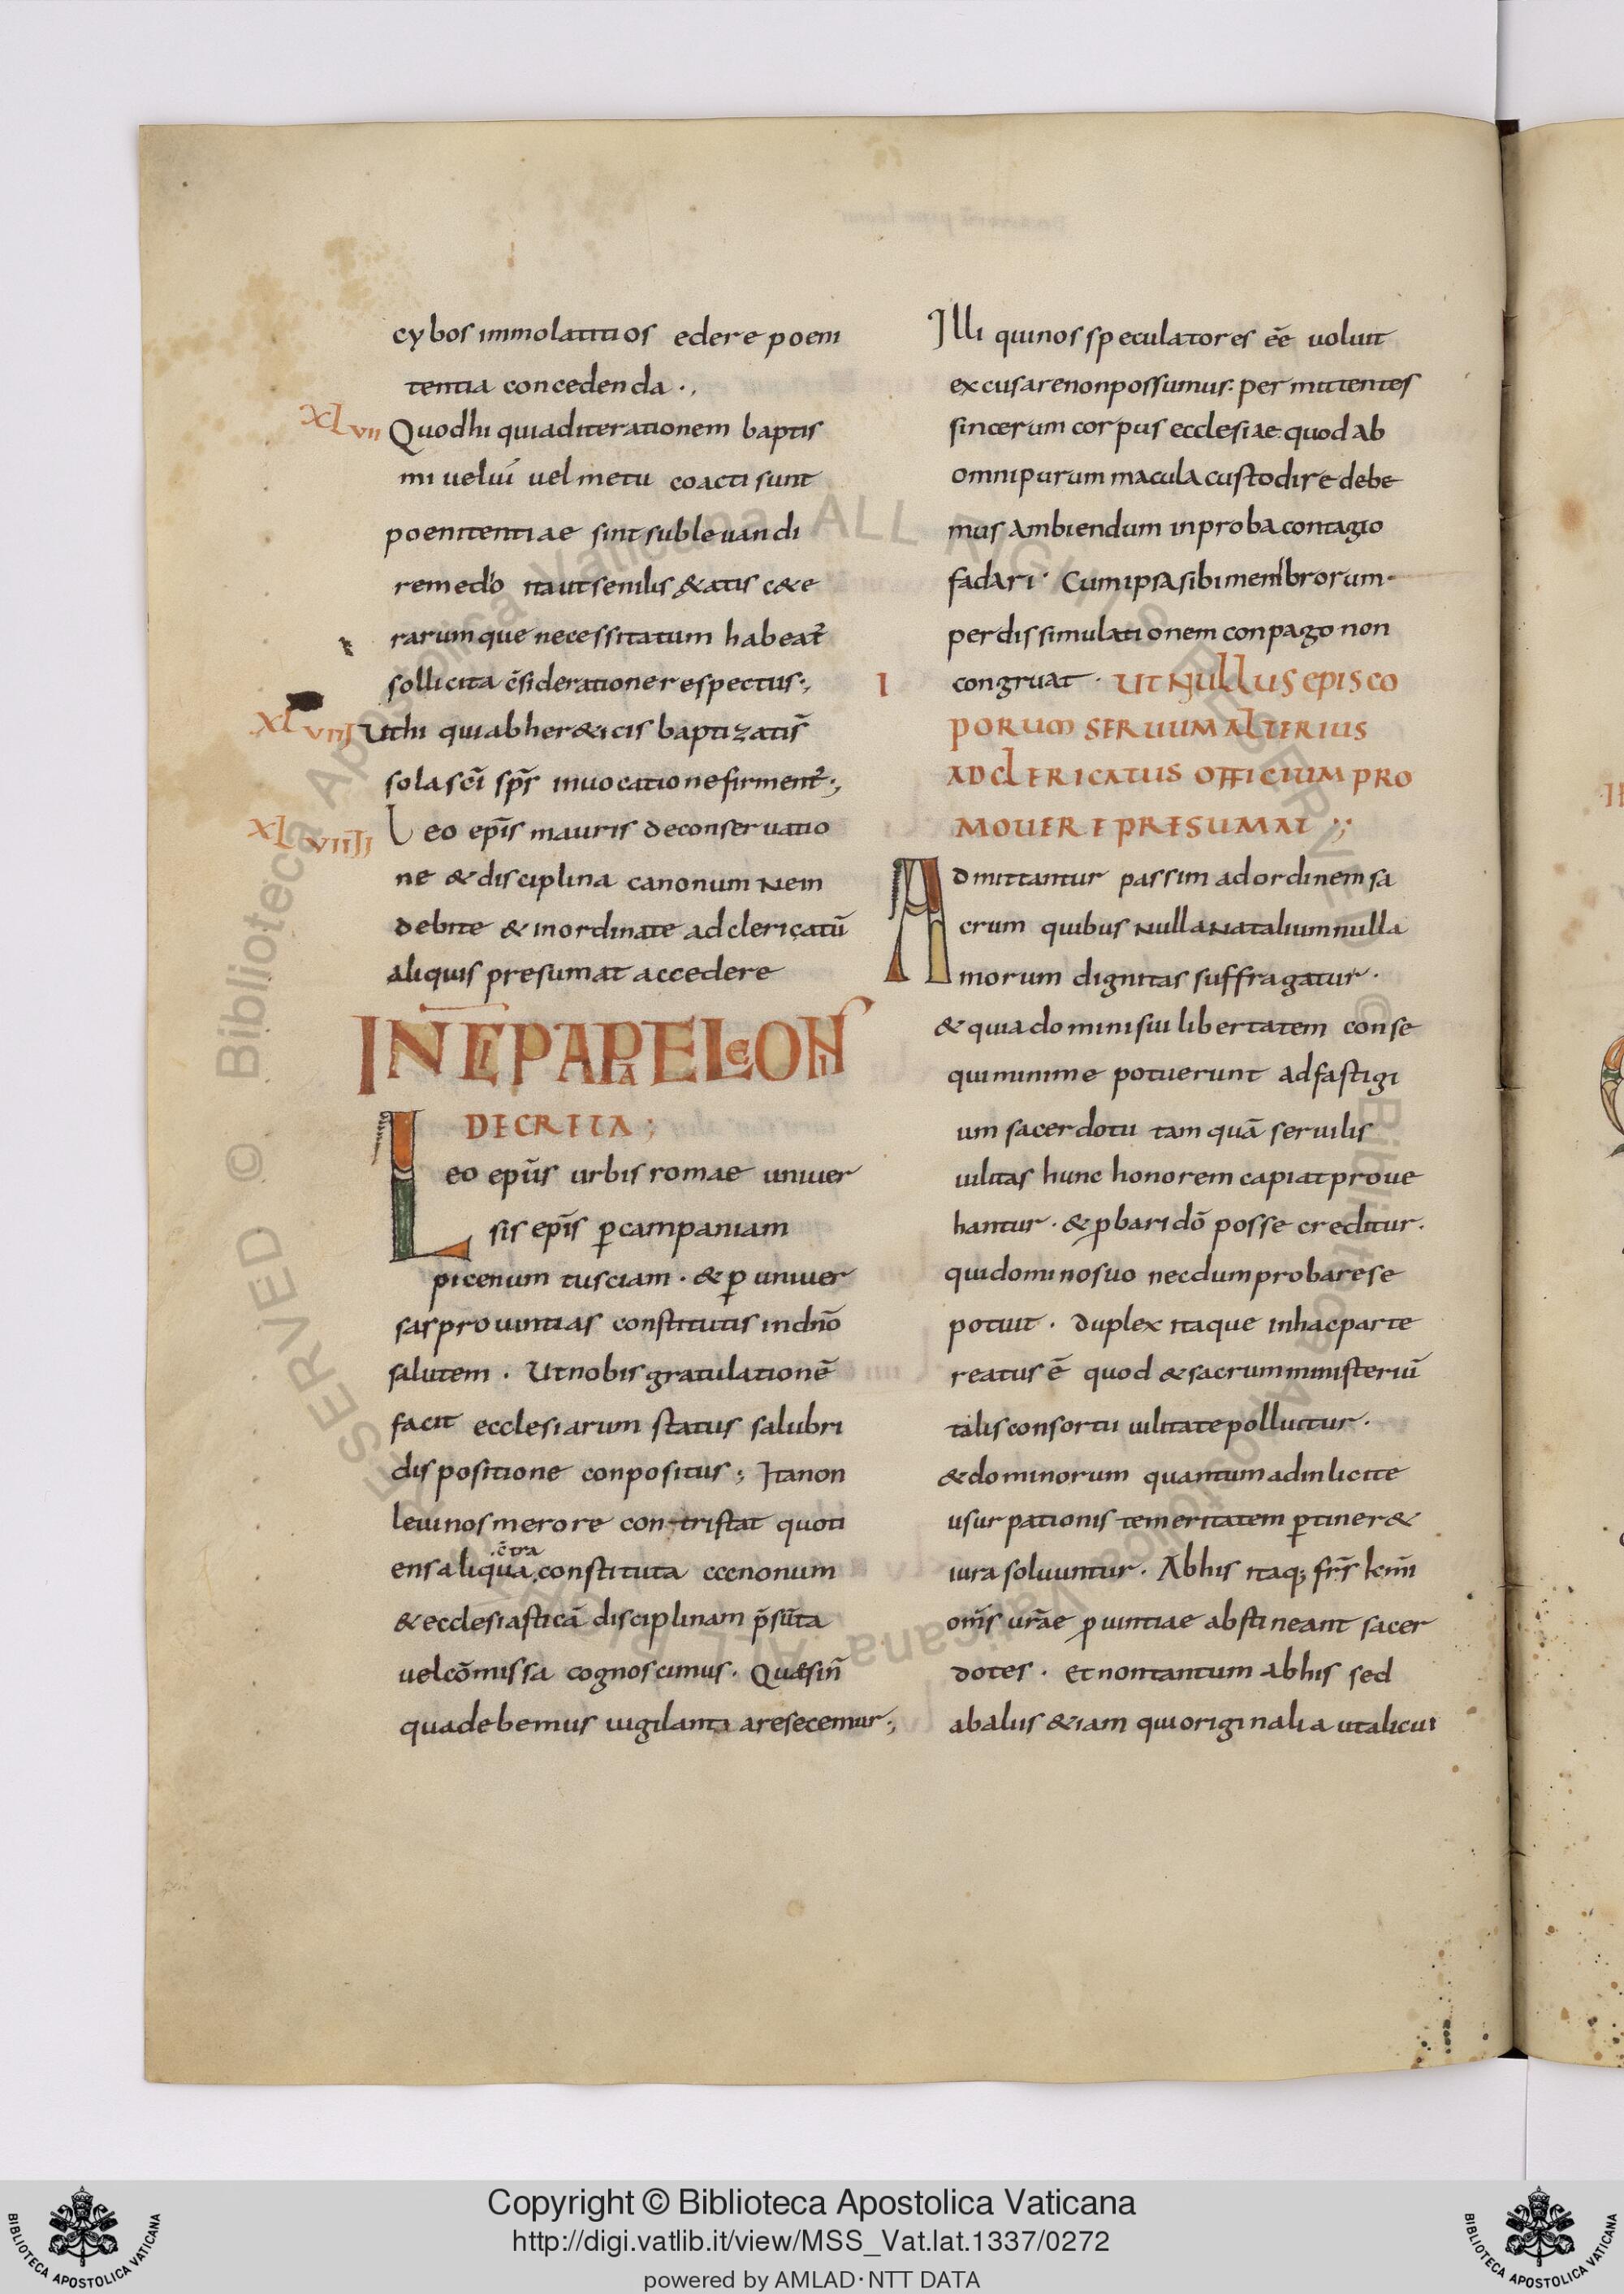 cybos immolatitios edere poeni
tentia concedenda .,
XLVII Quod hi qui ad iterationem baptis
mi uel uı́ uel metu coacti sunt
poenitentiae sint subleuandi
remedio ita ut senilis &atis c&e
rarumque necessitatum habeat᷑
sollicita c̄sideratione respectus.,
XLVIII Ut hi qui ab her&icis baptizatis̄
sola sc̄i sp̄s inuocatione firment᷑.,
XLVIIII Leo epīs mauris de conseruatio
ne & disciplina canonum Ne in
debite & inordinate ad clericatū
aliquis presumat accedere
DECRETA ;
Leo epūs urbis romae uniuer
sis epīs ꝑ campaniam
picenum tusciam . & ꝑ uniuer
sas prouintias constitutis in dn̄o
salutem . Ut nobis gratulationē
facit ecclesiarum status salubri
dispositione conpositus ; Ita non
leui nos merore contristat quoti
ens aliqua c̄tra constituta ccenonum
& ecclesiasticā disciplinam p̄sūta
uel cōmissa cognoscimus . Quæ sin̄
qua debemus uigilantia resecemur.,
Illi qui nos speculatores ēē uoluit
excusare non possumus: permittentes
sincerum corpus ecclesiae quod ab
omni purum macula custodire debe
mus ambiendum inproba contagio
fadari . Cum ipsa sibi membrorum
per dissimulationem conpago non
congruat . I UT NULLUS EPISCO
PORUM SERUUM ALTERIUS
AD CLERICATUS OFFICIUM PRO
MOUERE PRESUMAT .,
Admittantur passim ad ordinem sa
crum quibus nulla natalium nulla
morum dignitas suffragatur .
& qui a dominis sui libertatem conse
qui minime potuerunt ad fastigi
um sacerdotii tam quā seruilis
uilitas hunc honorem capiat proue
hantur . & ꝓbari dō posse creditur .
qui domino suo necdum probare se
potuit . Duplex itaque in hac parte
reatus ē quod & sacrum ministeriū
talis consortii uilitate polluitur .
& dominorum quantum ad inlicite
usurpationis temeritatem ꝑtiner&
iura soluuntur . Ab his itaq; frs̄ km̄i
om̄s urāe ꝓuintiae abstineant sacer
dotes . Et non tantum ab his sed
ab aliis &iam qui originali aut alicui
Copyright © Biblioteca Apostolica Vaticana
http://digi.vatlib.it/view/MSS_Vat.lat.1337/0272
powered by AMLAD·NTT DATA
BIBLIOTECA APOSTOLICA VATICANA
BIBLIOTECA APOSTOLICA VATICANA
© Biblioteca Apostolica Vaticana ALL RIGHTS RESERVED
© Biblioteca Apostolica Vaticana ALL RIGHTS RESERVED